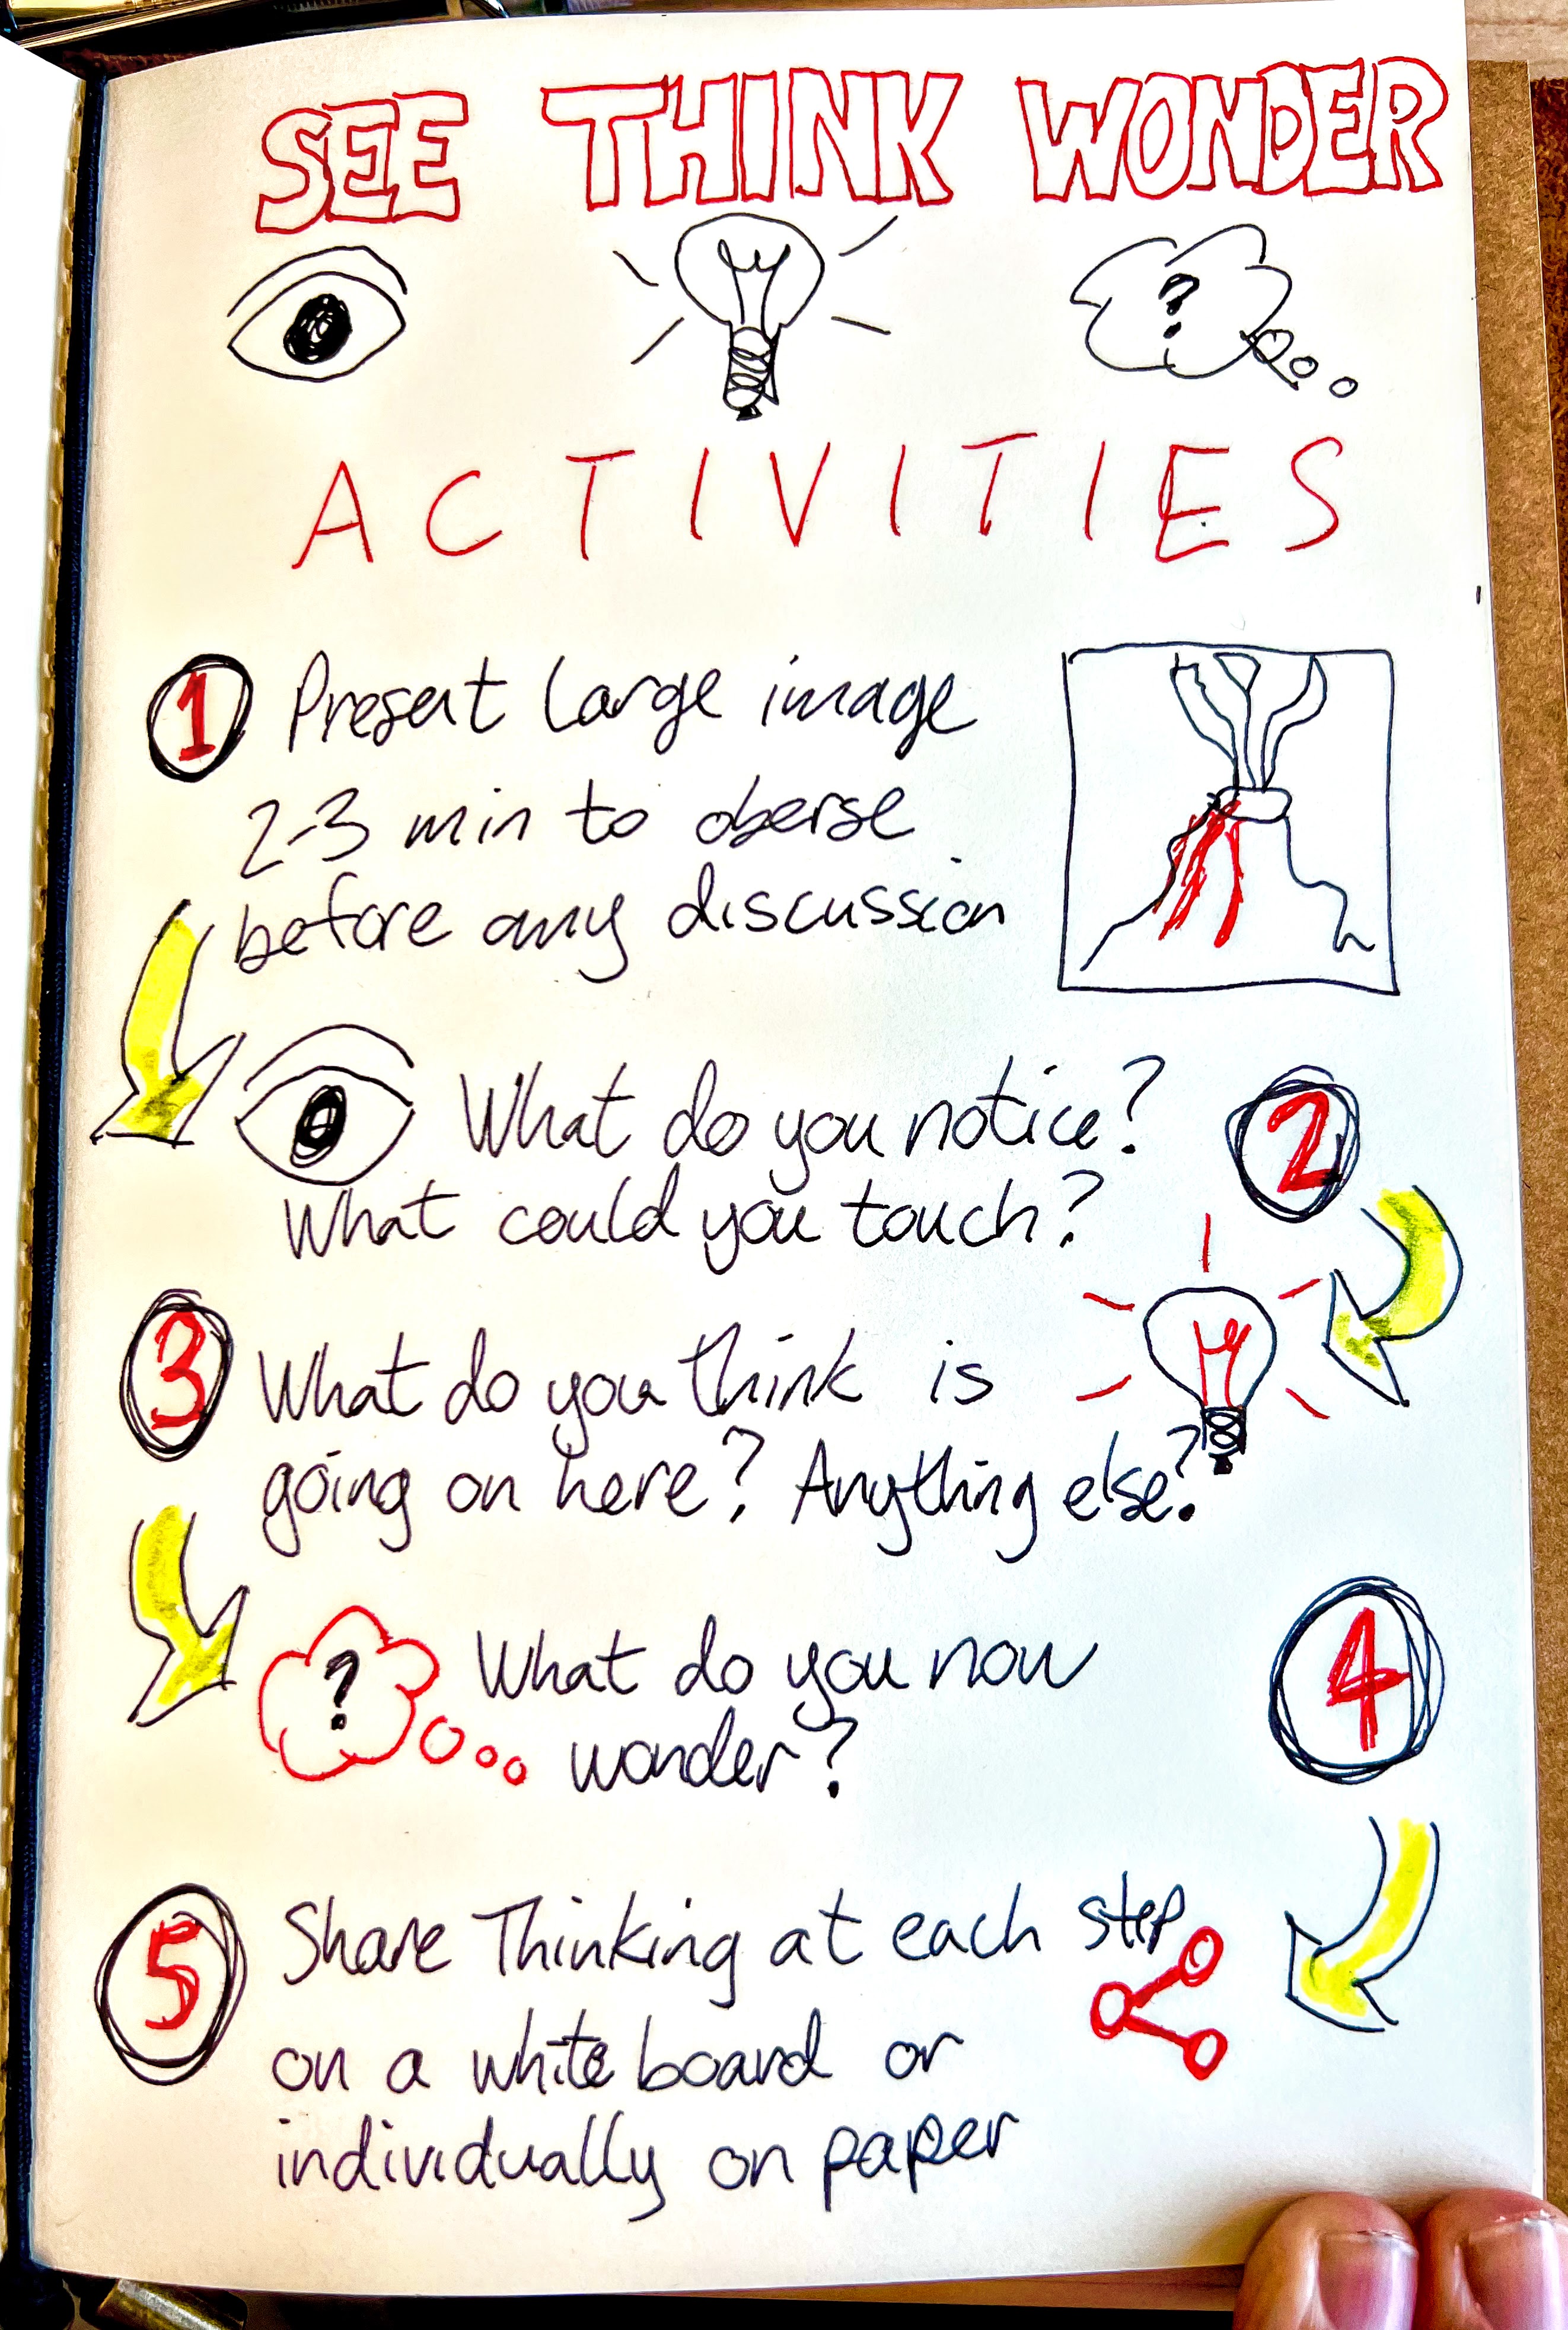 SEE THINK WONDER
?
ACTIVITIES
1 Present large image
2-3 min to oberse
before any discussion
What do you notice? 2
What could you touch?
3 What do you think is
going on here? Anything else?
? What do you now 4
wonder?
5 Share Thinking at each step
on a white board or
individually on paper